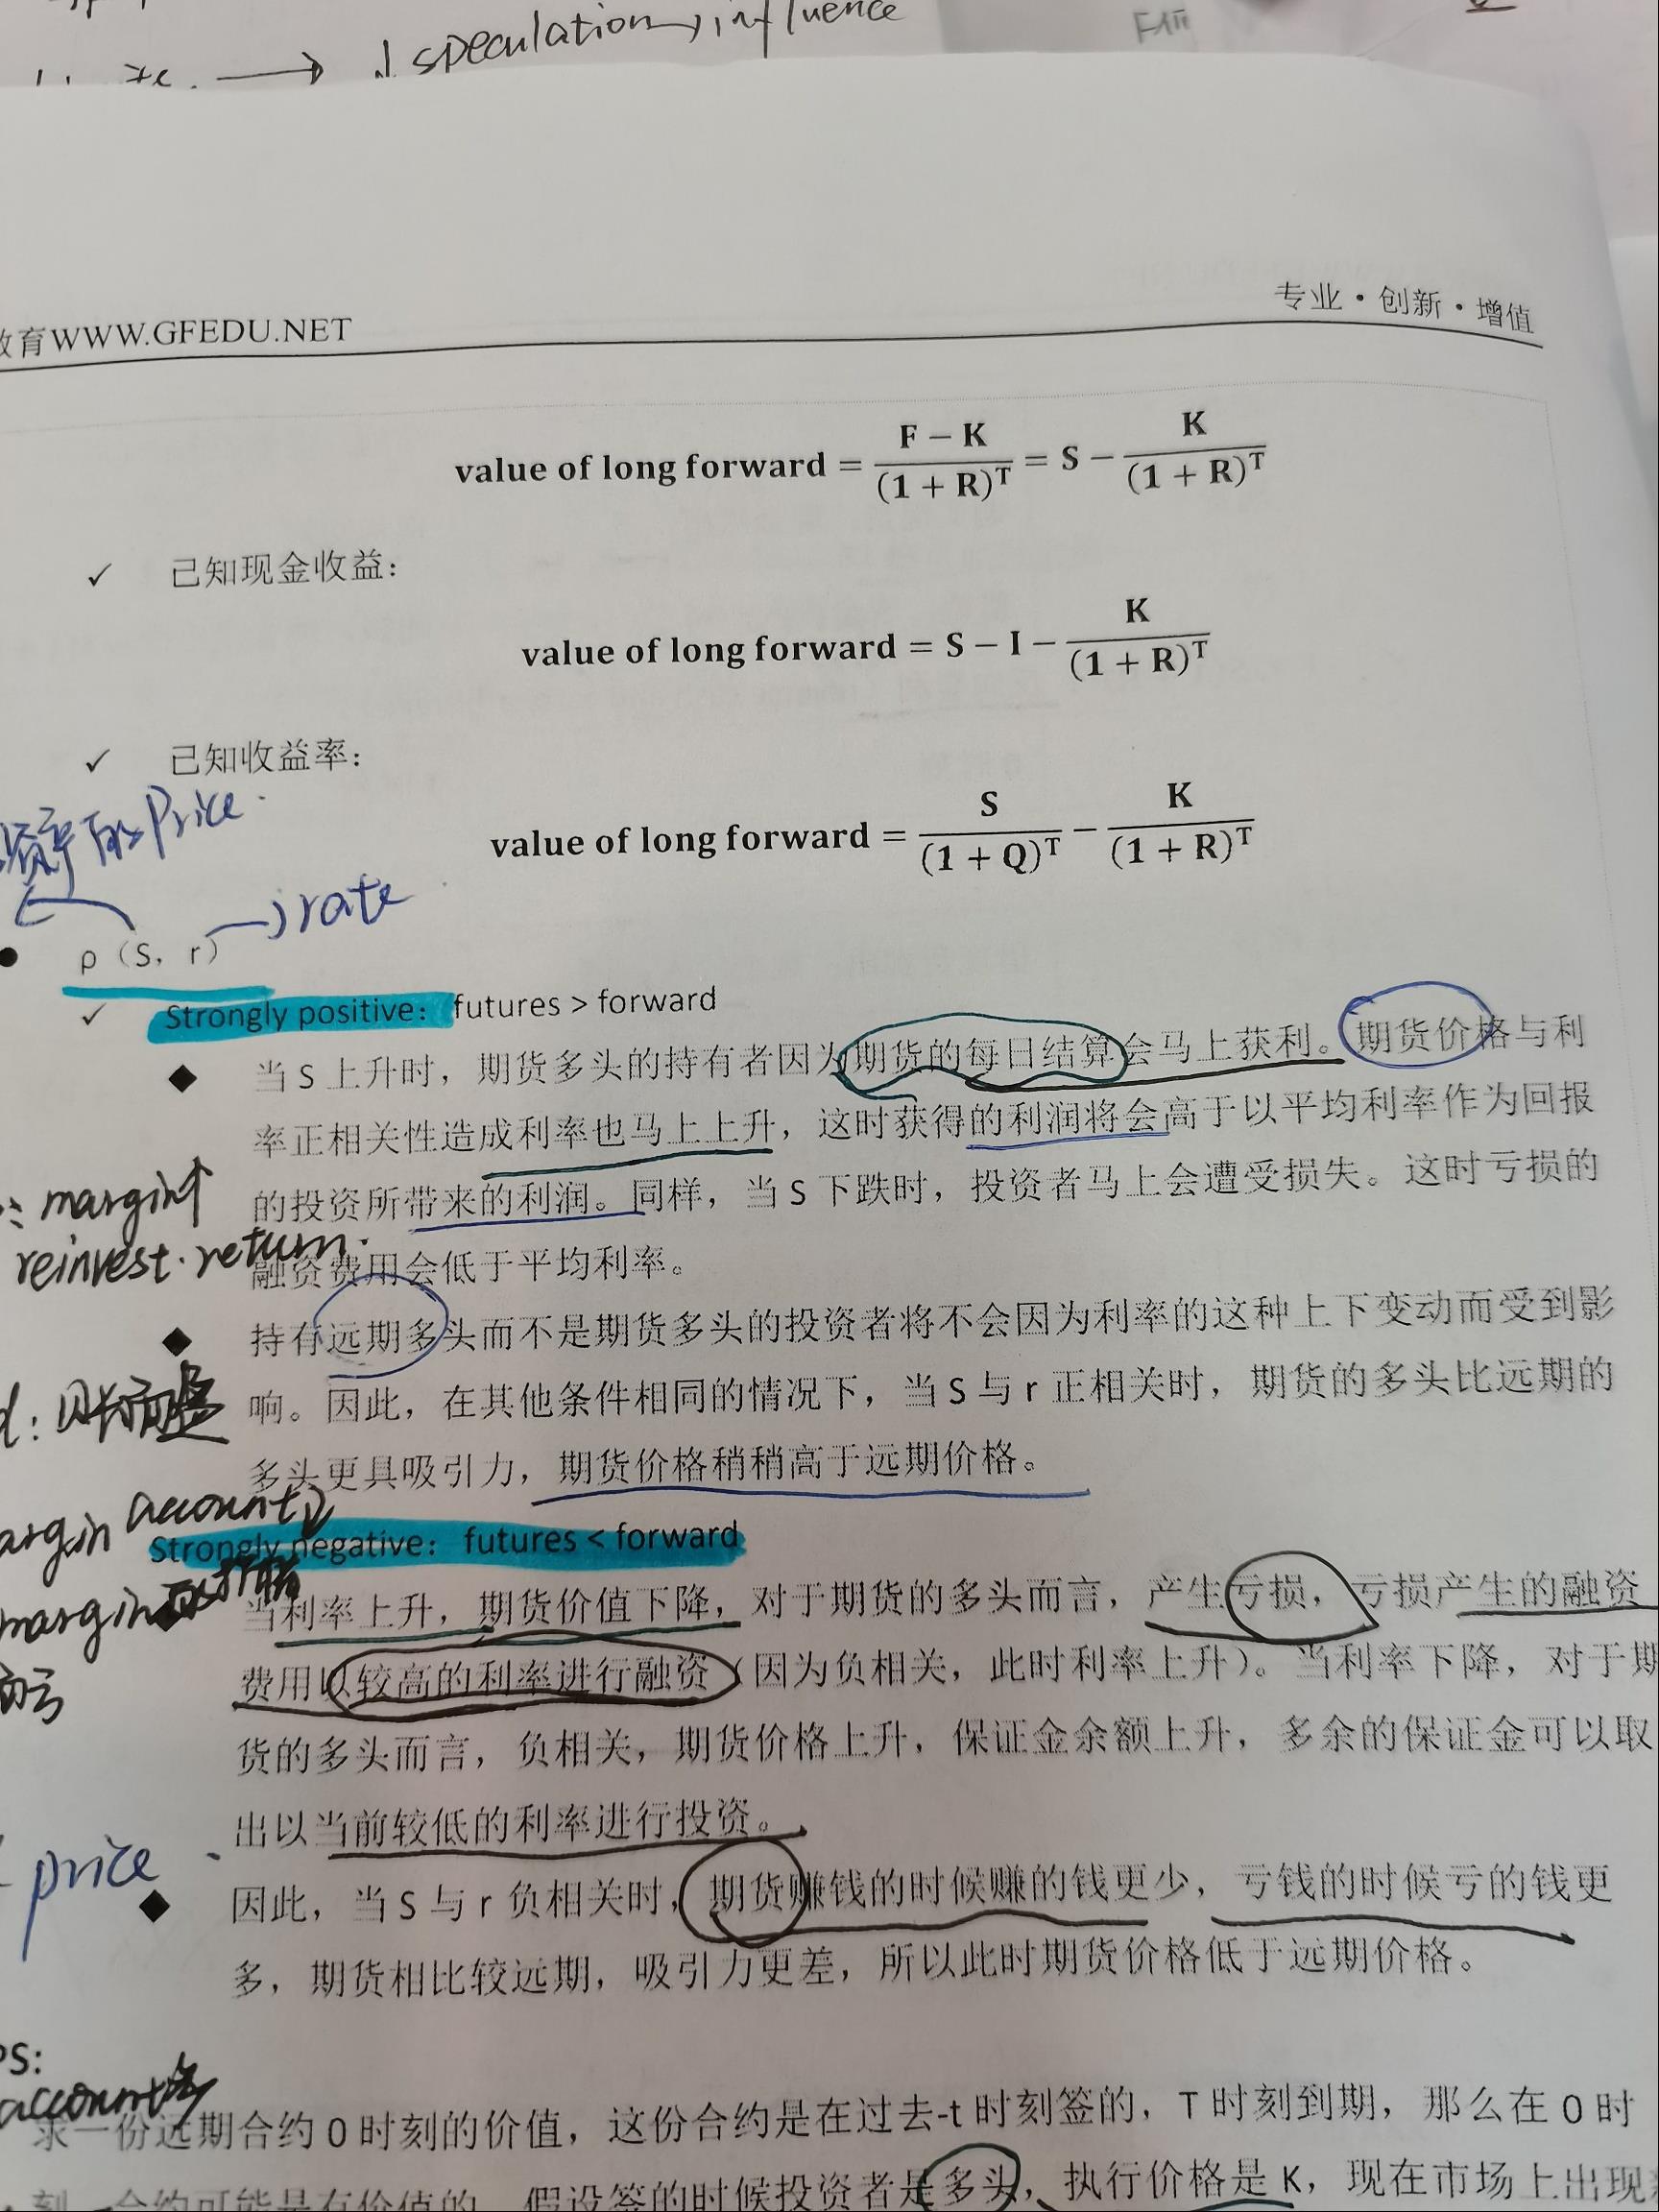 speculation, influence
教育WWW.GFEDU.NET
专业·创新·增值
value of long forward = (F − K)/(1 + R)^T = S − K/(1 + R)^T
✓ 已知现金收益：
value of long forward = S − I − K/(1 + R)^T
✓ 已知收益率：
资产的Price
value of long forward = S/(1 + Q)^T − K/(1 + R)^T
rate
● ρ（S，r）
✓ Strongly positive：futures > forward
◆ 当 S 上升时，期货多头的持有者因为期货的每日结算会马上获利。期货价格与利
率正相关性造成利率也马上上升，这时获得的利润将会高于以平均利率作为回报
的投资所带来的利润。同样，当 S 下跌时，投资者马上会遭受损失。这时亏损的
margin↑
reinvest. return.
融资费用会低于平均利率。
◆ 持有远期多头而不是期货多头的投资者将不会因为利率的这种上下变动而受到影
响。因此，在其他条件相同的情况下，当 S 与 r 正相关时，期货的多头比远期的
多头更具吸引力，期货价格稍稍高于远期价格。
margin account
Strongly negative： futures < forward
margin
◆ 当利率上升，期货价值下降，对于期货的多头而言，产生亏损，亏损产生的融资
费用以较高的利率进行融资（因为负相关，此时利率上升）。当利率下降，对于期
货的多头而言，负相关，期货价格上升，保证金余额上升，多余的保证金可以取
出以当前较低的利率进行投资。
price
◆ 因此，当 S 与 r 负相关时，期货赚钱的时候赚的钱更少，亏钱的时候亏的钱更
多，期货相比较远期，吸引力更差，所以此时期货价格低于远期价格。
PS:
account
求一份远期合约 0 时刻的价值，这份合约是在过去-t 时刻签的，T 时刻到期，那么在 0 时
刻一合约可能是有价值的 假设签的时候投资者是多头，执行价格是 K，现在市场上出现